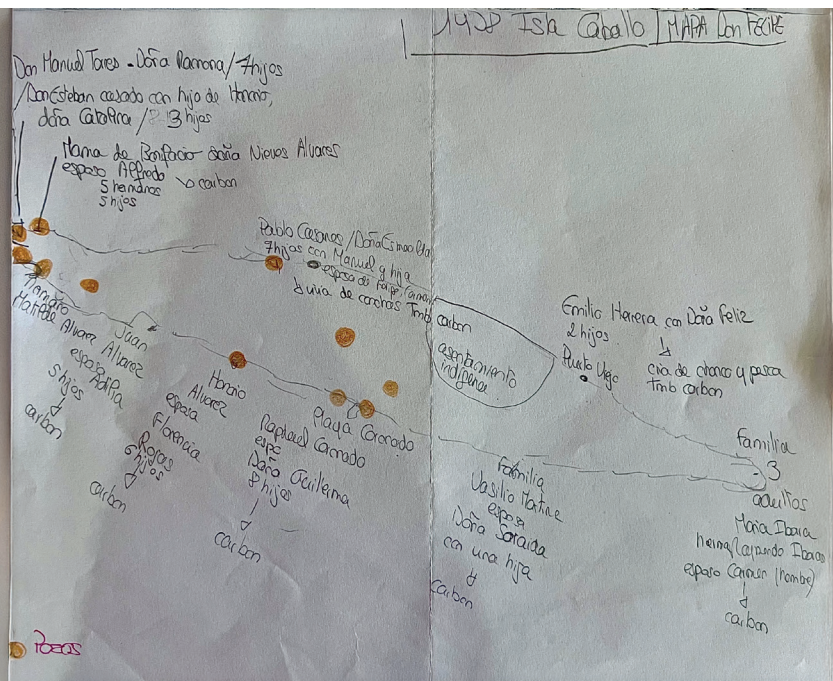 1958 Isla Caballo | MAPA Don FELIPE
Don Manuel Tores - Doña Ramona / 7 hijos
/ Don Esteban casado con hijo de Horacio,
doña Catalina / 3 hijos
Mama de Bonifacio doña Nieves Alvares
esposo Alfredo
carbon
5 hermanos
5 hijos
Pablo Casanas / Doña Esmeralda
7 hijos con Manuel y hija
esposa de Felipe, Carmen
vivia de conchas tmb carbon
asentamiento
indigena
Emilio Herrera con Doña Feliz
2 hijos
cria de chanco y pesca
tmb carbon
Punto Viejo
Matilde Alvarez
5 hijos
carbon
Juan
Alvarez
esposa
Adilia
Horacio
Alvarez
esposa
Florencia
Rojas
6 hijos
carbon
Playa Coronado
Raphael Coronado
Doña Guillerma
8 hijos
carbon
Familia
Vasilio Martine
esposa
Doña Soraida
con una hija
carbon
Familia
3
adultos
Maria Ibara
esposo Carmen (hombre)
carbon
Pozos